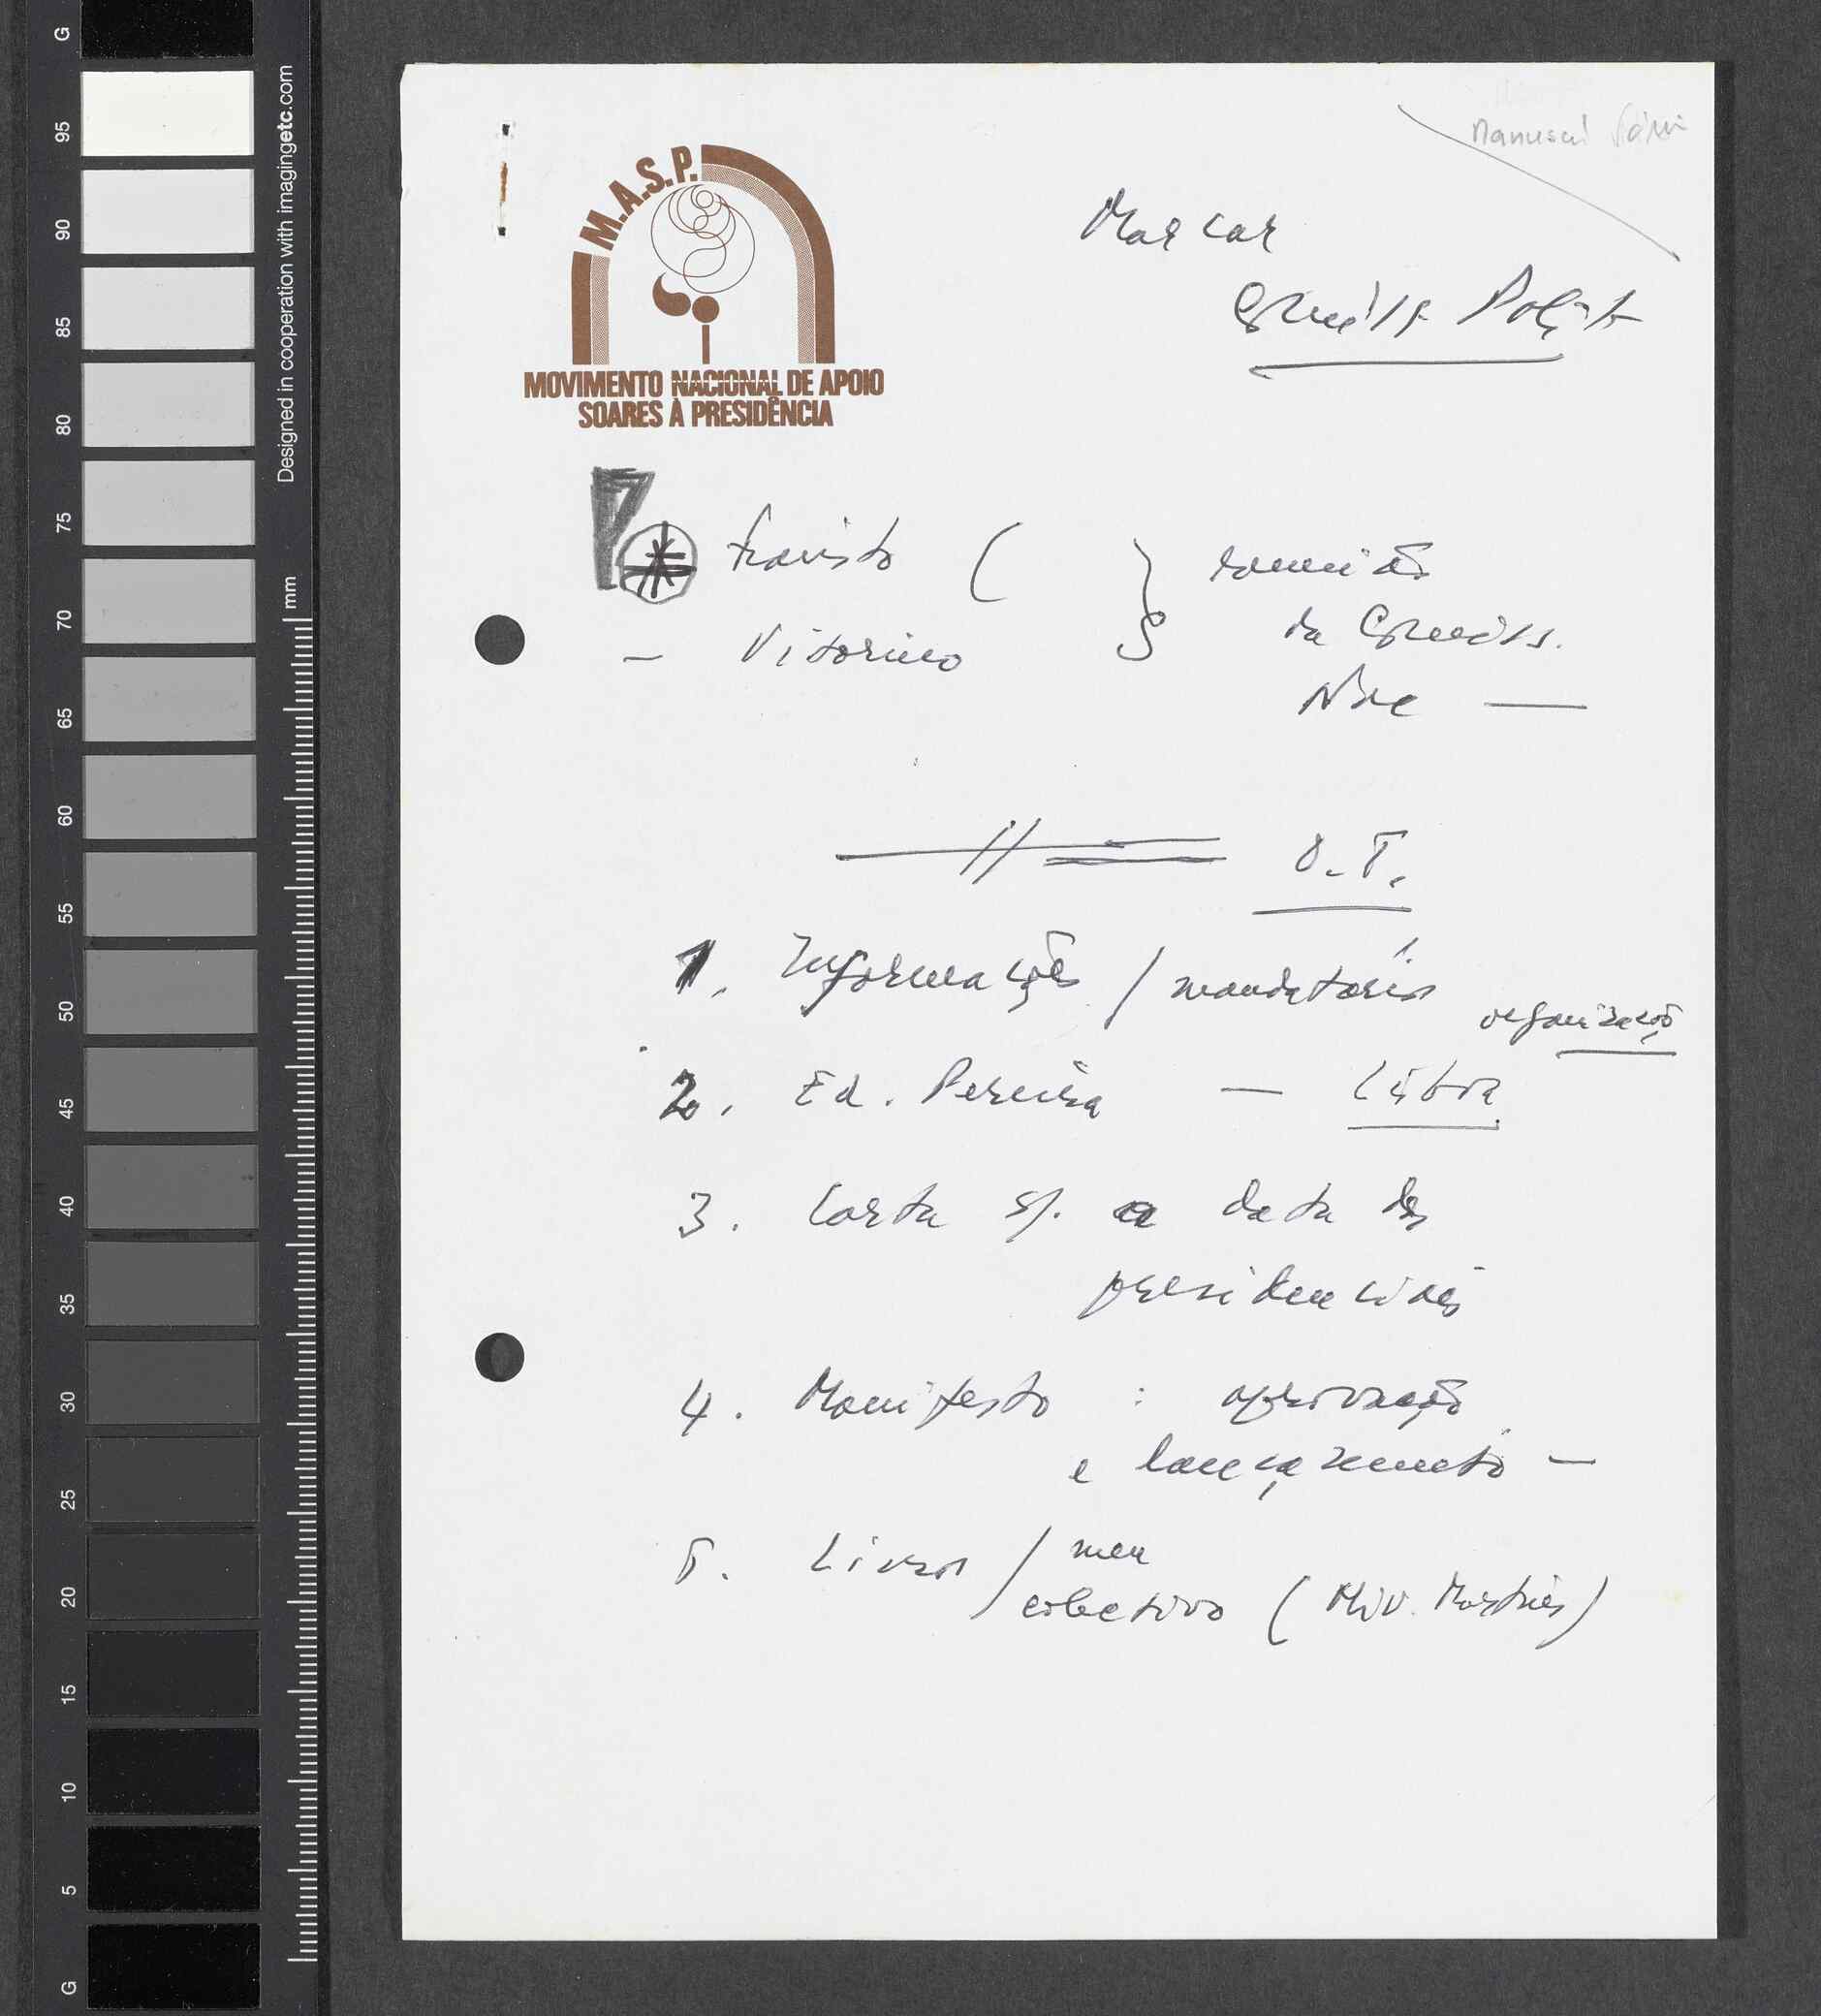 G
95
90
85
80
75
70
65
60
55
50
45
40
35
30
25
20
15
10
5
G
Designed in cooperation with imagingetc.com
mm
M.A.S.P.
MOVIMENTO NACIONAL DE APOIO
SOARES À PRESIDÊNCIA
Marcar
reunião
- Vitorino
da
O.T.
1. Informações / mandatários
organização
2. Ed. Pereira — Lisboa
3. Carta s/. a data das
presidenciais
4. Manifesto : aprovação
e lançamento —
5. Livros / meu
colectivo ( Martins )